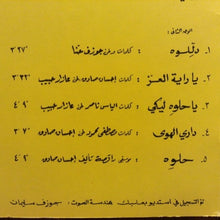 الوجه الثاني:
١. دلّوه : كلمات ولحن جوزف حنّا ٣'٢٧"
٢. يا داية العز : كلمات إحسان صادق لحن عازار حبيب ٣'٣٢"
٣. يا حلوه ليكي : كلمات الياس ناصر لحن عازار حبيب ٤'٩
٤. داري الهوى : كلمات مصطفى محمود لحن إحسان صادق ٣'٧
٥. حلوه : موسيقى راقصة تأليف إحسان صادق ٤'٢
تمّ التسجيل في استديو بعلبك، هندسة الصوت: جوزف سليمان